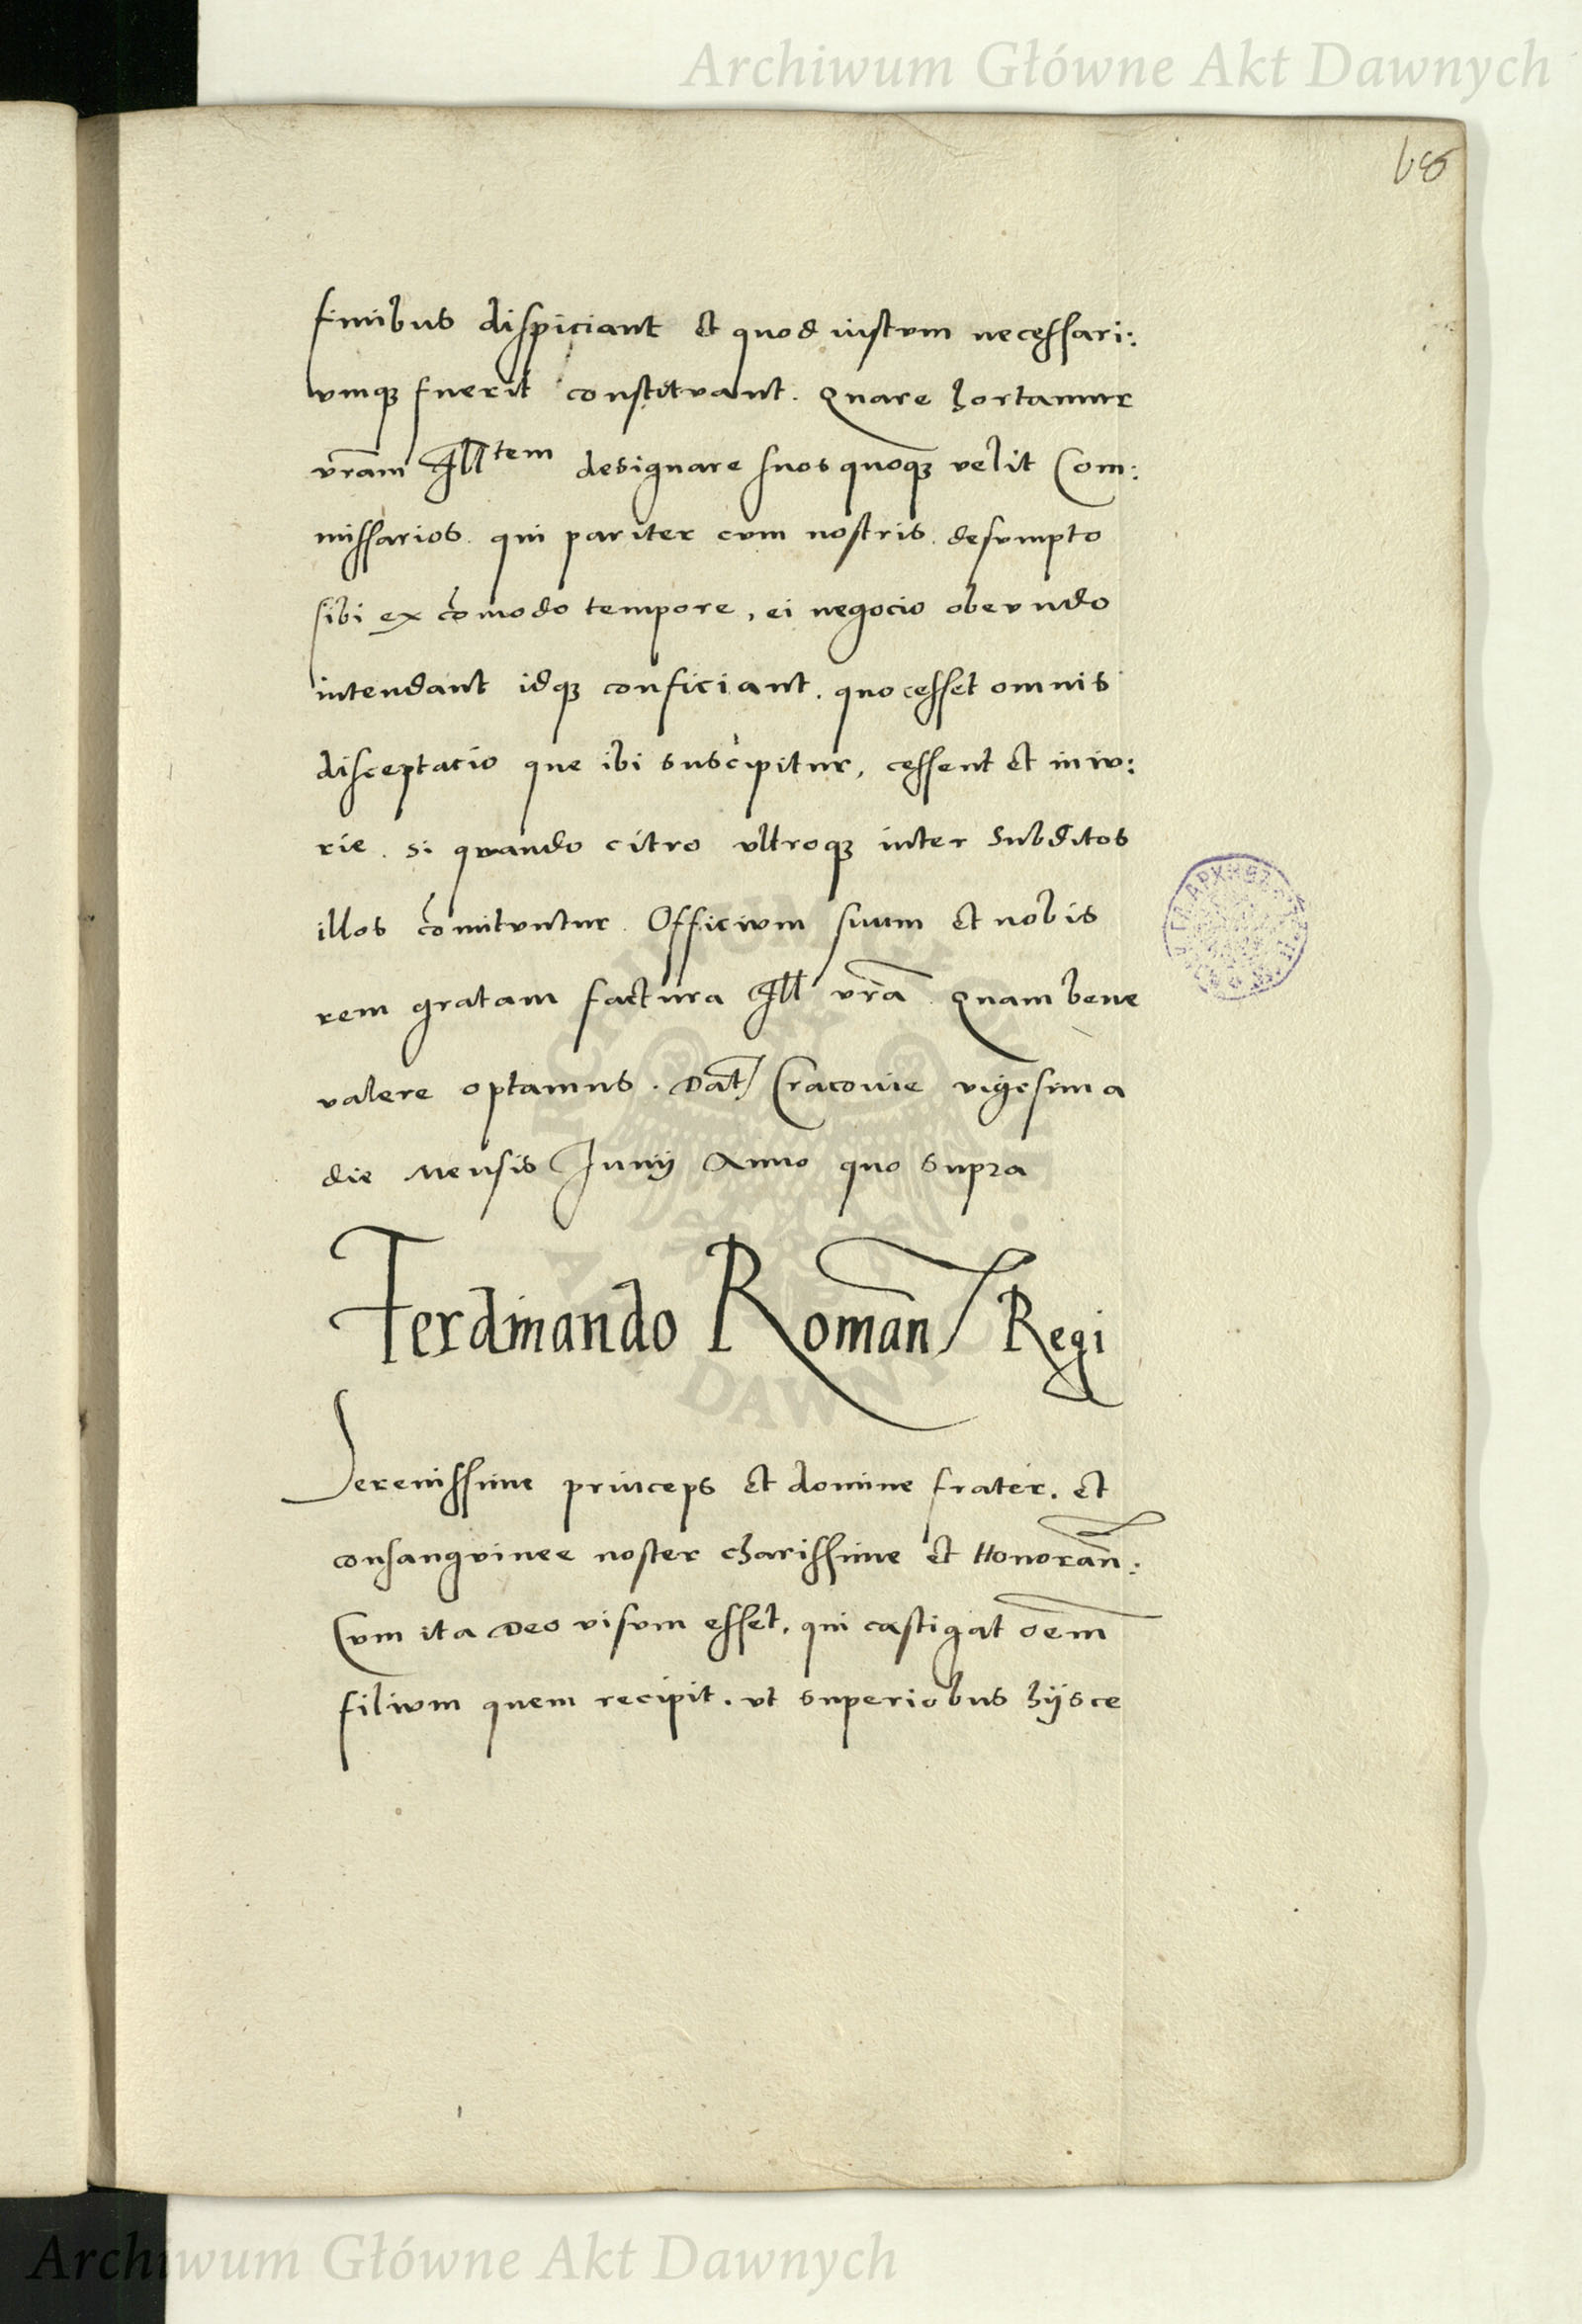 Archiwum Główne Akt Dawnych
68
finibus dispiciant et quod iustum necessari:
umq; fuerit constituant. Quare hortamur
vrãm Ill tem designare suos quoq; velit Com:
missarios. qui pariter cum nostris. desumpto
sibi ex cõmodo tempore, ei negocio obeundo
intendant idq; conficiant. quo cesset omnis
disceptacio que ibi suscipitur, cessent et iniu:
rie. si quando citro ultroq; inter subditos
illos cõmituntur. Officium suum et nobis
rem gratam factura Ill vrã. Quam bene
valere optamus. Dat Cracovie vigesima
die mensis Junij Anno quo supra
Ferdinando Romañ Regi
Serenissime princeps et domine frater. et
consanguinee noster charissime et Honorañ:
Cum ita Deo visum esset, qui castigat oẽm
filium quem recipit. ut superiobus hijsce
Archiwum Główne Akt Dawnych